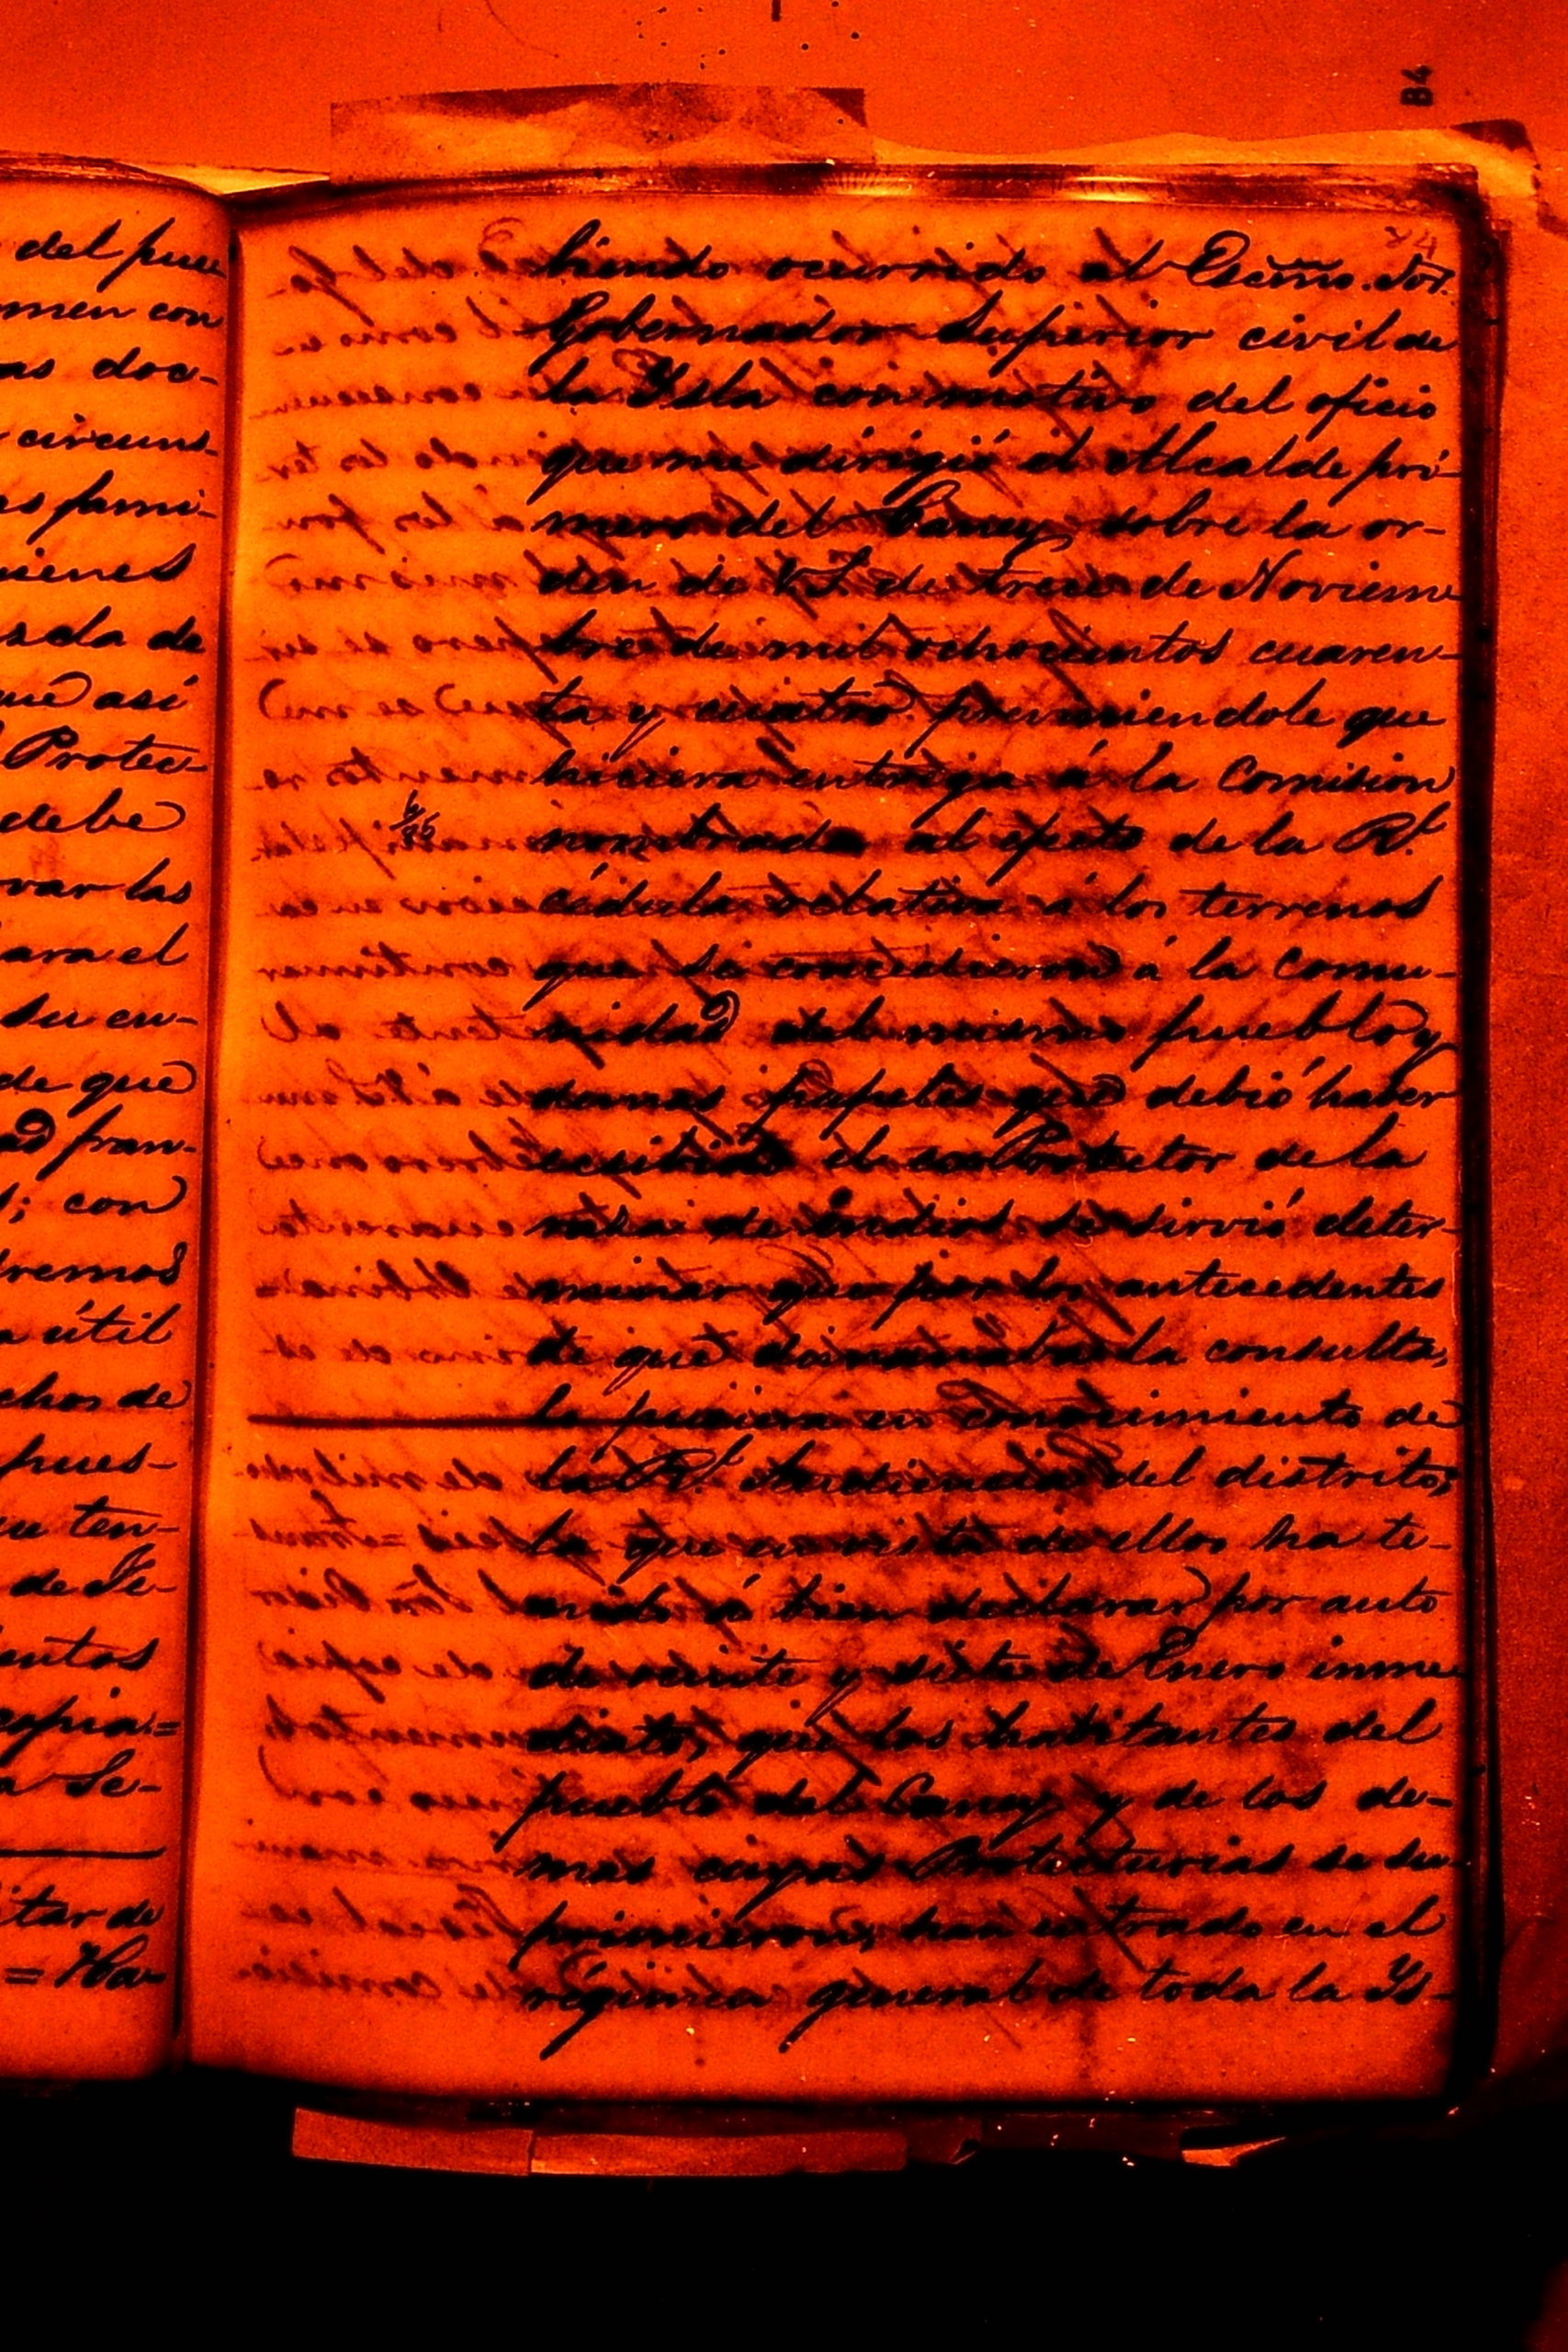 del pue
men con
as doc-
circuns-
s fami-
ienes
scla de
que así
Protec-
debe
var las
para el
su cu-
de que
ad fran-
s; con
tremos
a útil
chos de
pues-
ten-
de Fe-
entos
copia=
a Se-
itar de
= Ha-
B4
84
biendo ocurrido al Escmo. Sor.
Gobernador Superior civil de
la Ysla con motivo del oficio
que me dirigió el Alcalde pri-
mero del Caney sobre la or-
den de V.S. de trece de Noviem
bre de mil ochocientos cuaren-
ta y cuatro previniendole que
hiciera entrega á la Comision
nombrada al efecto de la Rl.
cédula relativa á los terrenos
que se concedieron á la comu-
nidad del mismo pueblo y
demas papeles que debió haber
recibido el ex Protector de la
raza de indios se sirvió deter-
minar que por los antecedentes
de que dimanaba la consulta,
la pusiera en conocimiento de
la Rl. Audiencia del distrito;
la que en vista de ellos ha te-
nido á bien declarar por auto
de veinte y siete de Enero inme
diato, que los habitantes del
pueblo del Caney y de los de-
mas cuyas Protecturias se su-
primieron, han entrado en el
régimen general de toda la Ys-